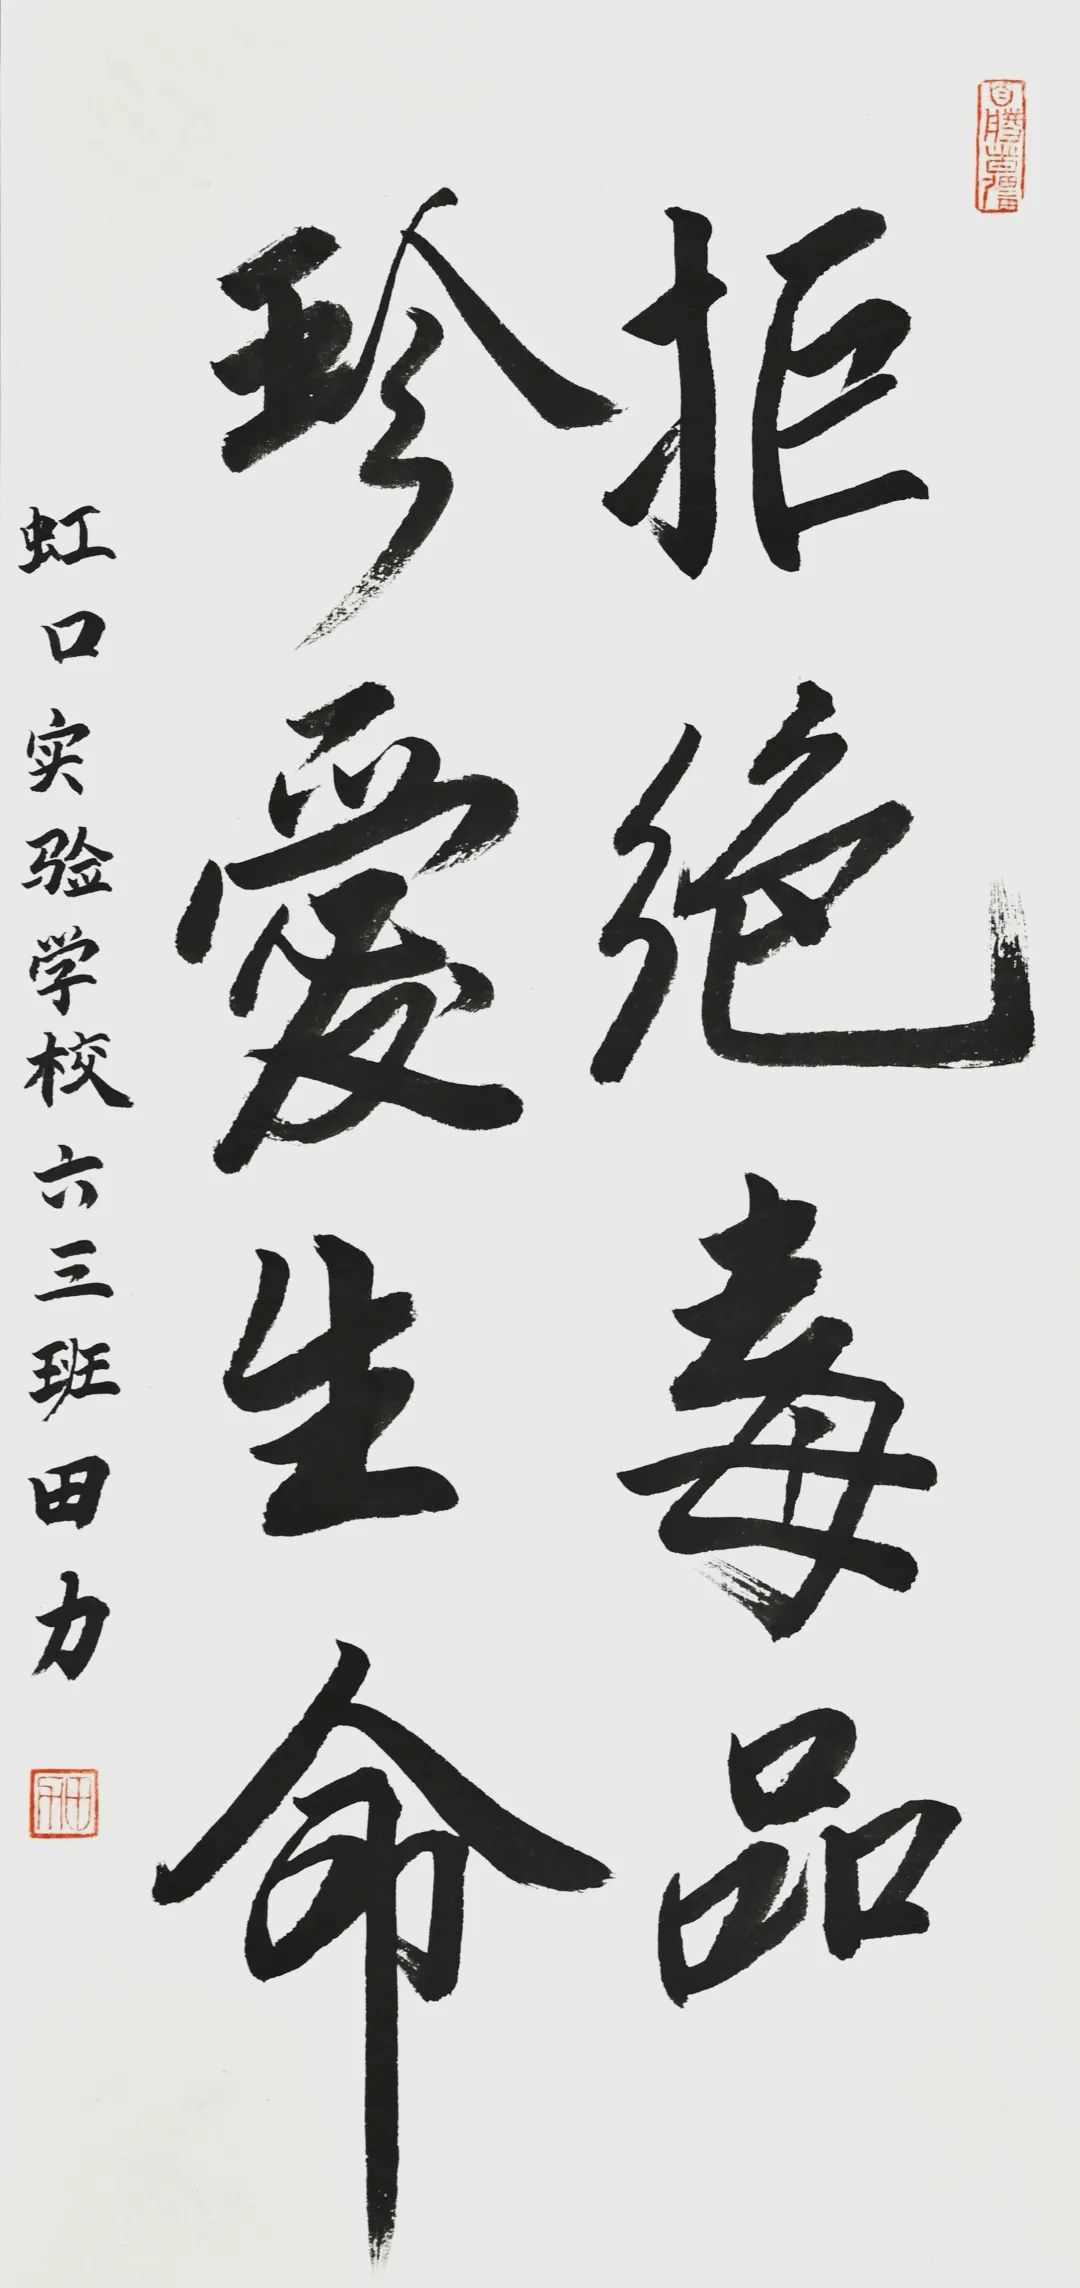 拒绝毒品
珍愛生命
虹口实验学校六三班田力